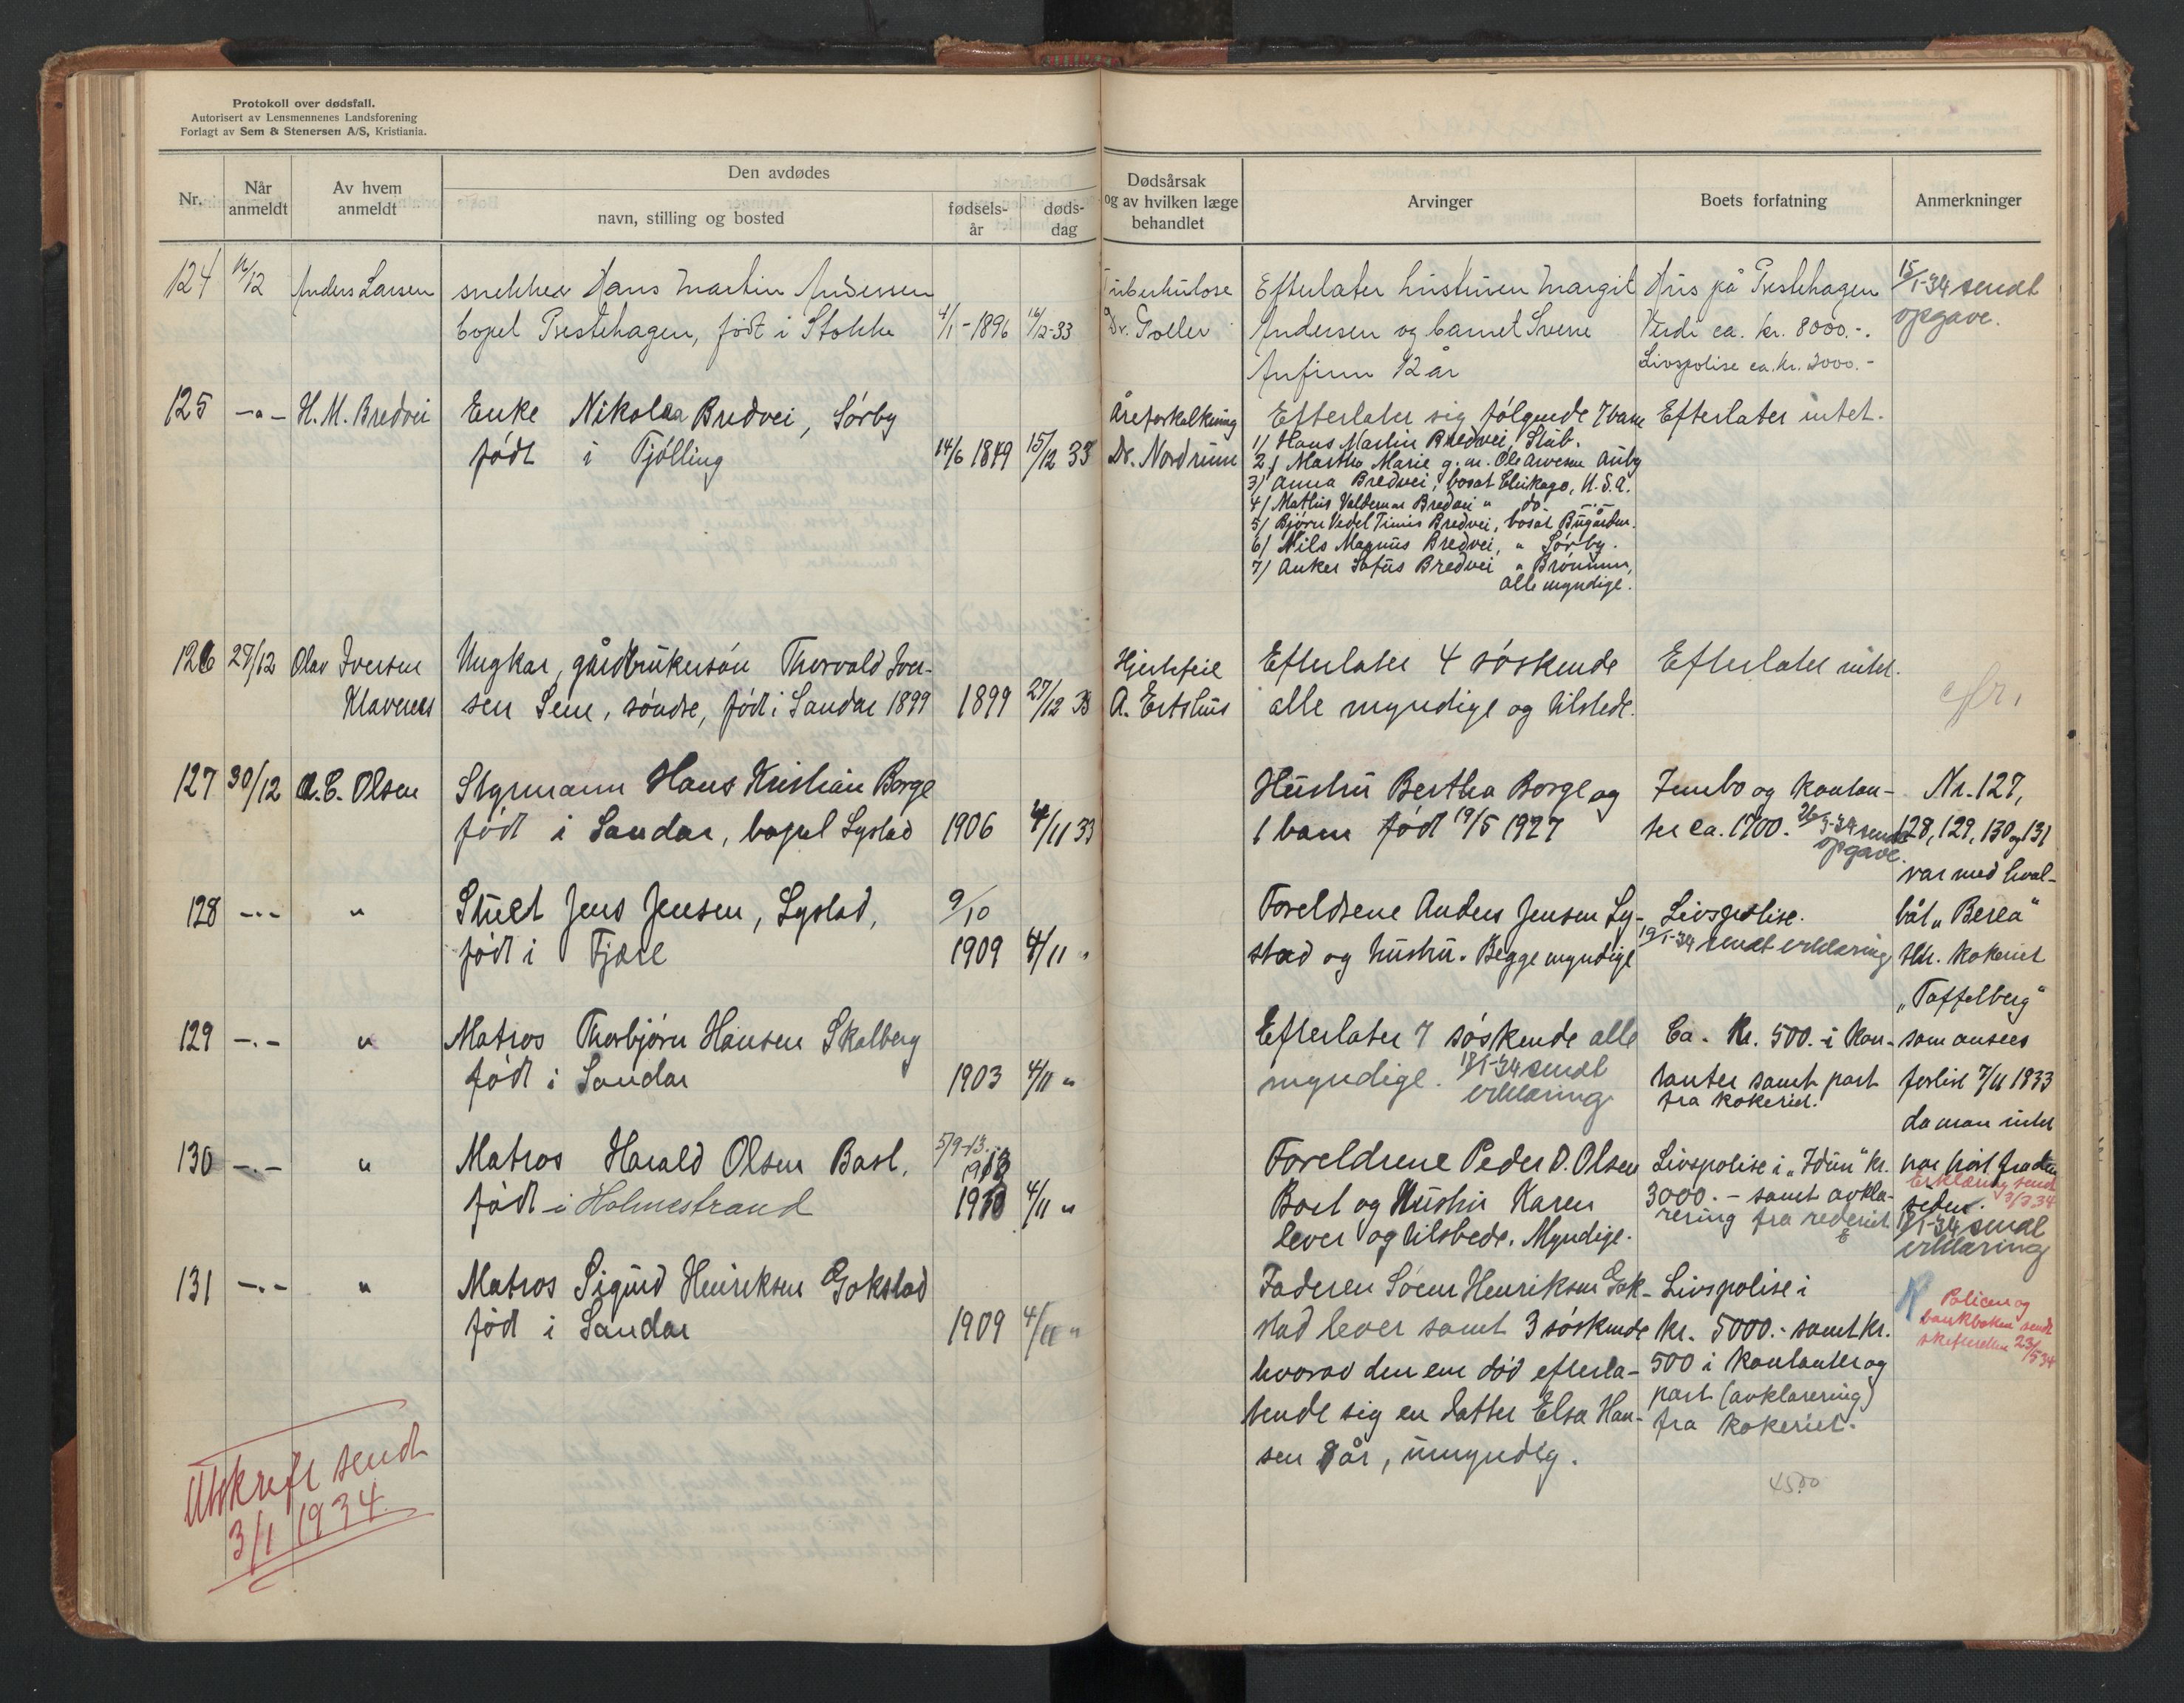 Protokoll over dødsfall.
Autorisert av Lensmennenes Landsforening
Forlagt av Sem & Stenersen A/S, Kristiania.
Nr.
Når anmeldt
Av hvem anmeldt
Den avdødes
navn, stilling og bosted
fødsels-år
døds-dag
Dødsårsak og av hvilken læge behandlet
Arvinger
Boets forfatning
Anmerkninger
124 /12 Anders Larsen snekker Hans Martin Andersen
bopel Prestehagen, født i Stokke 4/1-1896 /12-33
Tuberkulose
Dr. Goller
Efterlater hustruen Margit
Andersen og barnet Sverre
Anfinn 12 år
Hus på Prestehagen
Verdi ca. kr. 8000.-.
Livspolise ca. kr. 3000.-
15/1-34 sendt
opgave.
125 -"- H. M. Bredvei Enke Nikolea Bredvei, Sørby
født i Tjølling 14/6 1849 15/12 33
Åreforkalkning
Dr. Nordrum
Efterlater sig følgende 7 barn
1/ Hans Martin Bredvei, Stub.
2/ Martha Marie g. m. Ole Arvesen Auby
3/ Anna Bredvei, bosat Chikago, U.S.A.
4/ Mathis Valdemar Bredvei " do -.-
5/ Bjørn Vedel Timis Bredvei, bosat Bugården.
6/ Nils Magnus Bredvei, " Sørby.
7/ Anker Sofus Bredvei " Brønnum,
alle myndige.
Efterlater intet.
126 27/12 Olav Iversen
Klavenes
Ungkar, gårdbrukersøn Thorvald Iver-
sen Sem, søndre, født i Sandar 1899 1899 27/12 33
Hjertefeil
A. Ertshus
Efterlater 4 søskende
alle myndige og tilstede.
Efterlater intet.
127 30/12 A. C. Olsen Styrmann Hans Kristian Borge
født i Sandar, bopel Lystad 1906 4/11 33
Hustru Bertha Borge og
1 barn født 19/5 1927
Innbo og kontan-
ter ca. 1700. 26/3-34 sendt
opgave.
Nr. 127,
128, 129, 130 og 131
var med hval-
båt „Berea"
tilh. kokeriet
„Taffelberg"
som ansees
forlist 7/11 1933
da man intet
har hørt fra den
siden.
128 -.- " Stuert Jens Jensen, Lystad, 9/10
født i Fjære 1909 4/11 "
Foreldrene Anders Jensen Ly-
stad og hustru. Begge myndige
Livspolise.
19/1-34 sendt erklæring
129 -.- " Matros Thorbjørn Hansen Skalberg
født i Sandar 1903 4/11 "
Efterlater 7 søskende alle
myndige. 18/1-34 sendt
erklæring
Ca. Kr. 500.- i kon-
tanter samt part
fra kokeriet.
130 -.- " Matros Harald Olsen Basl. 5/9-13.
1913
født i Holmestrand 1910 4/11 "
Foreldrene Peder O. Olsen
Basl og Hustru Karen
lever og tilstede. Myndige.
Livspolise i „Idun" kr.
3000.- samt avkla-
rering fra rederiet.
Erklæring sendt
3/3 34
18/1-34 sendt
erklæring
131 -.- " Matros Sigurd Henriksen Gokstad
født i Sandar 1909 4/11 "
Faderen Søren Henriksen Gok-
stad lever samt 3 søskende
hvorav den ene død efterla-
tende sig en datter Elsa Han-
sen 8 år, umyndig.
Livspolise i
kr. 5000.- samt kr.
500 i kontanter og
part (avklarering)
fra kokeriet.
4500
Policen og
bankboken sendt
skifteretten 23/5 34
Utskrift sendt
3/1 1934